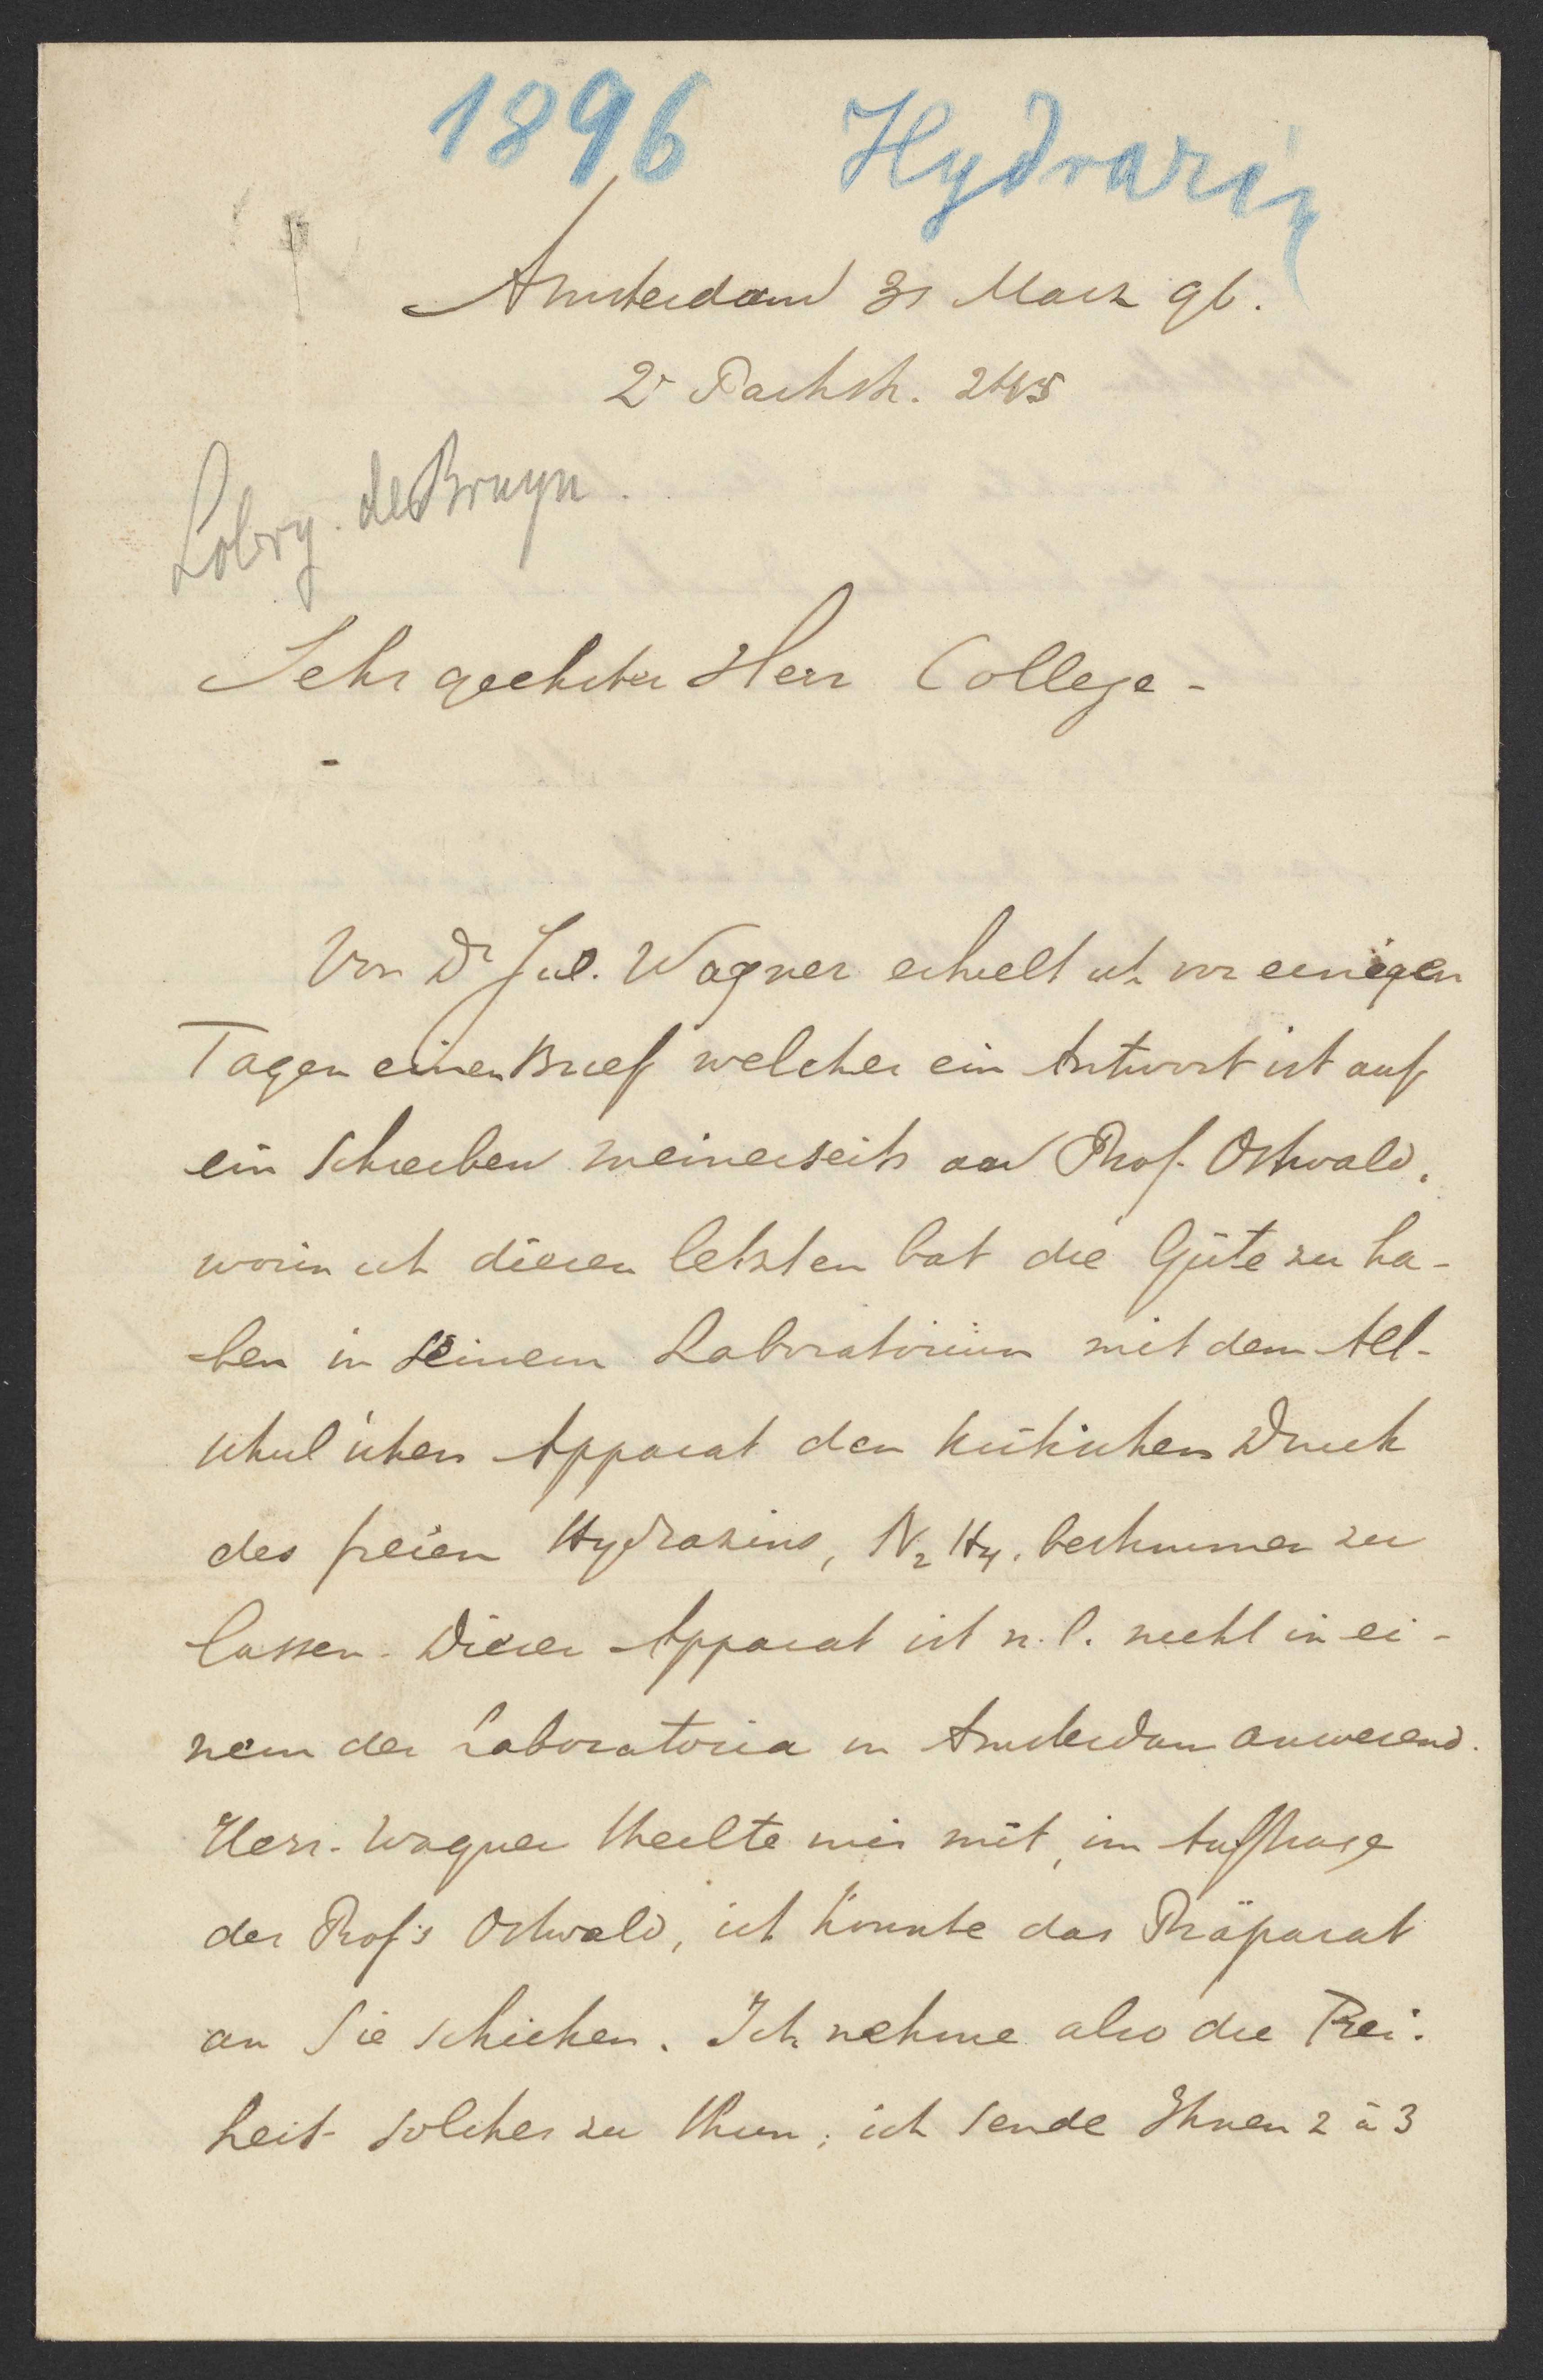 1896 Hydrazin
Amsterdam 31 Marz 96.
2e Parkstr. 245
Lobry. de Bruyn.
Sehr geehrter Herr College -
Von Dr Jul. Wagner erhielt ich vor einigen
Tagen einen Brief welcher ein Antwort ist auf
ein Schreiben meinerseits an Prof. Ostwald,
worin ich diesen letzten bat die Güte zu ha-
ben in seinem Laboratorium mit dem Alt-
schul'schen Apparat den kritischen Druck
des freien Hydrazins, N2H4, bestimmen zu
lassen. Dieser Apparat ist n.l. nicht in ei-
nem der Laboratoria in Amsterdam anwesend.
Herr. Wagner theilte mir mit, im Auftrage
des Prof's Ostwald, ich konnte das Präparat
an Sie schicken. Ich nehme also die Frei-
heit solches zu thun; ich sende Ihnen 2 à 3